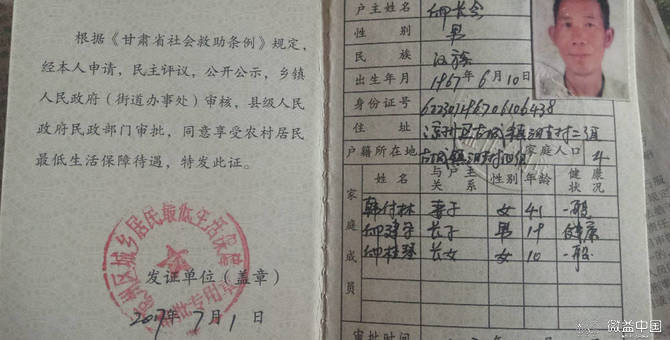 根据《甘肃省社会救助条例》规定，
经本人申请，民主评议，公开公示，乡镇
人民政府（街道办事处）审核，县级人民
政府民政部门审批，同意享受农村居民
最低生活保障待遇，特发此证。
州区城乡居民最低生活保
审批专用章
发证单位（盖章）
2017年7月1日
户主姓名 长会
性别 男
民族 汉族
出生年月 1967年6月10日
身份证号 622301196706106438
住址 凉州区古城镇河村二组
户籍所在地 古城镇河村四组 家庭人口 4
家庭成员
姓名 与户主关系 性别 年龄 健康状况
韩付林 妻子 女 41 一般
长子 男 19 健康
长女 女 10 一般
审批时间
微益中国